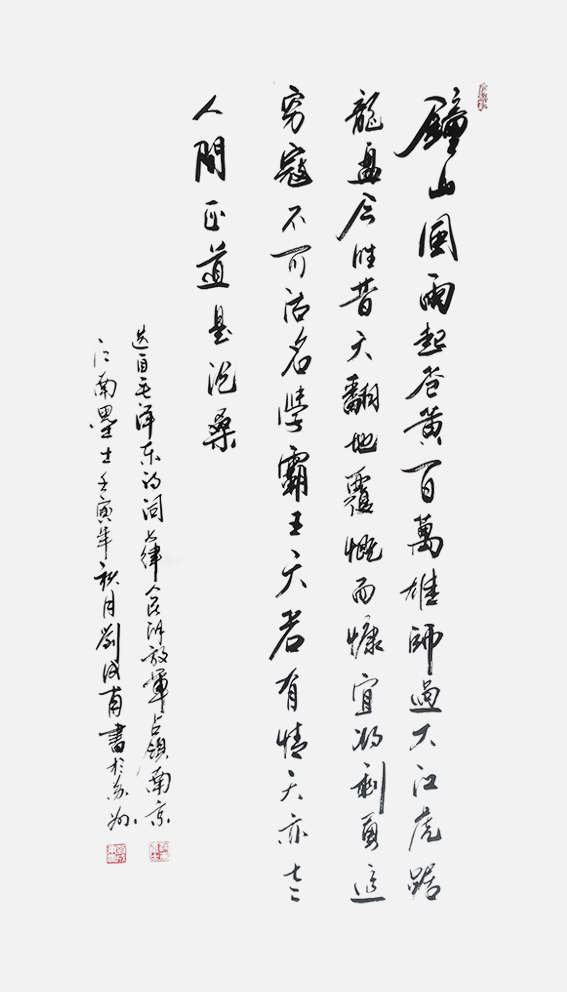 鐘山風雨起蒼黃百萬雄師過大江虎踞
龍盤今勝昔天翻地覆慨而慷宜將剩勇追
窮寇不可沽名學霸王天若有情天亦老
人間正道是滄桑
選自毛澤東詩詞七律人民解放軍占領南京
江南墨士壬寅年秋月劉成書於蘇州